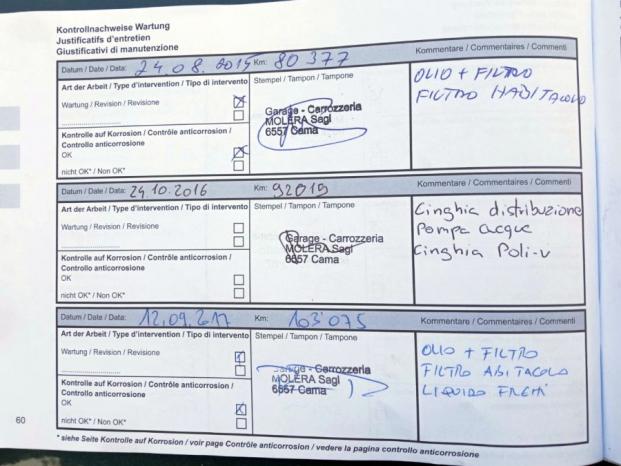 Kontrollnachweise Wartung
Justificatifs d'entretien
Giustificativi di manutenzione
Datum / Date / Data: 24 08. 2015 Km: 80 377
Kommentare / Commentaires / Commenti
Art der Arbeit / Type d'intervention / Tipo di intervento
Stempel / Tampon / Tampone
OLIO + FILTRO
FILTRO HABITACOLO
Wartung / Revision / Revisione
Garage - Carrozzeria
MOLERA Sagl
6557 Cama
Kontrolle auf Korrosion / Contrôle anticorrosion /
Controllo anticorrosione
OK
nicht OK* / Non OK*
Datum / Date / Data: 24.10.2016 Km: 92019
Kommentare / Commentaires / Commenti
Art der Arbeit / Type d'intervention / Tipo di intervento
Stempel / Tampon / Tampone
Cinghia distribuzione
Pompa acque
Cinghia Poli-v
Wartung / Revision / Revisione
Garage - Carrozzeria
MOLERA Sagl
6557 Cama
Kontrolle auf Korrosion / Contrôle anticorrosion /
Controllo anticorrosione
OK
nicht OK* / Non OK*
Datum / Date / Data: 12.09.2017 Km: 103'075
Kommentare / Commentaires / Commenti
Art der Arbeit / Type d'intervention / Tipo di intervento
Stempel / Tampon / Tampone
OLIO + FILTRO
FILTRO ABITACOLO
LIQUIDO FRENI
Wartung / Revision / Revisione
Garage - Carrozzeria
MOLERA Sagl
6557 Cama
Kontrolle auf Korrosion / Contrôle anticorrosion /
Controllo anticorrosione
OK
nicht OK* / Non OK*
60
* siehe Seite Kontrolle auf Korrosion / voir page Contrôle anticorrosion / vedere la pagina controllo anticorrosione